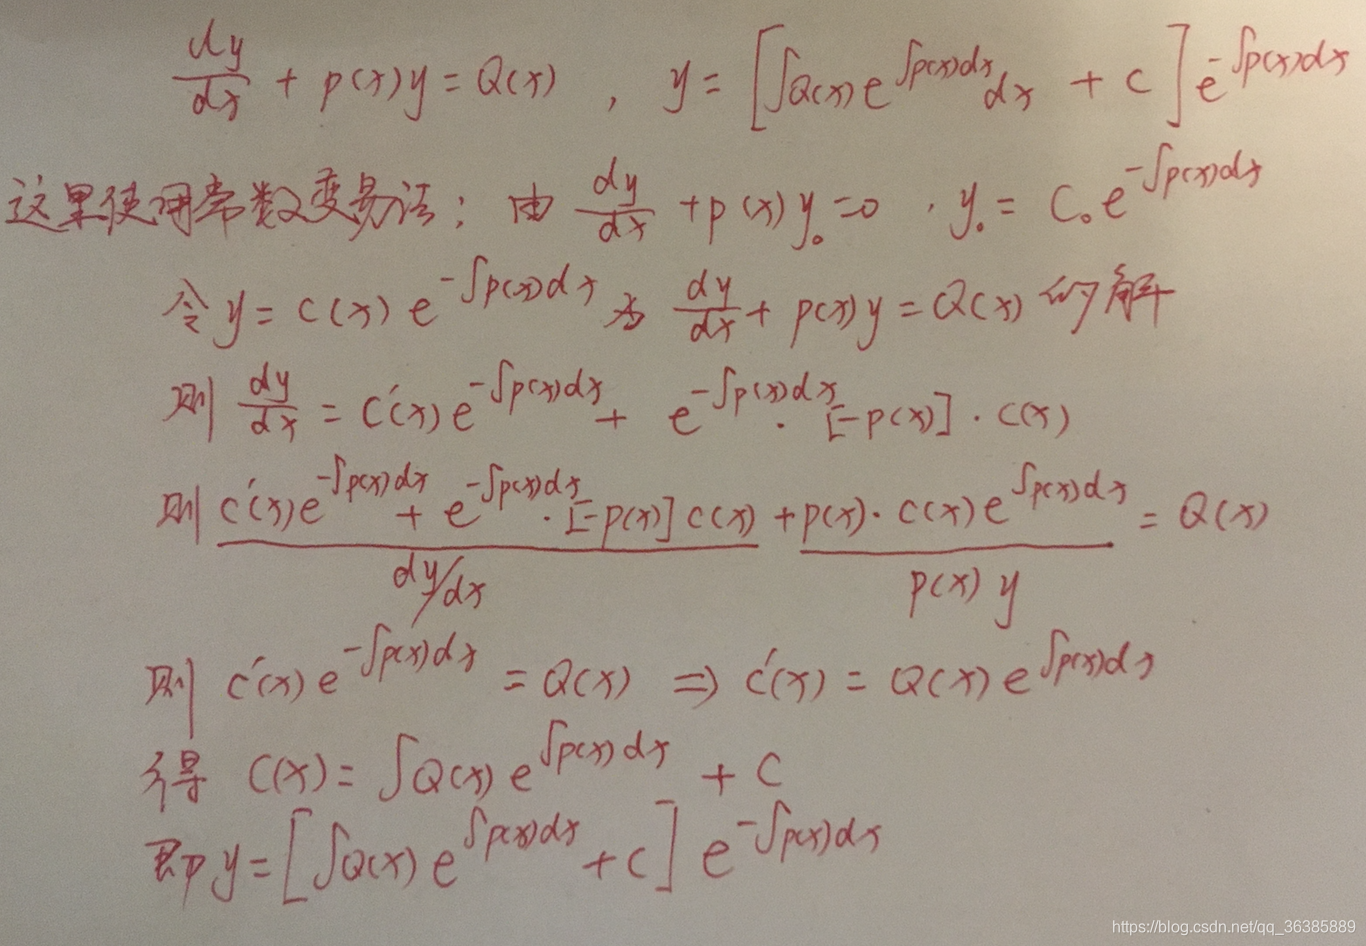 dy/dx + p(x)y = Q(x) , y = [∫Q(x)e^{∫p(x)dx}dx + C]e^{-∫p(x)dx}
这里使用常数变易法: 由 dy/dx + p(x)y₀ = 0 . y₀ = C₀e^{-∫p(x)dx}
令 y = C(x)e^{-∫p(x)dx} 为 dy/dx + p(x)y = Q(x) 的解
则 dy/dx = C'(x)e^{-∫p(x)dx} + e^{-∫p(x)dx} · [-p(x)] · C(x)
则 C'(x)e^{-∫p(x)dx} + e^{-∫p(x)dx} · [-p(x)]C(x) + p(x) · C(x)e^{∫p(x)dx} = Q(x)
dy/dx p(x)y
则 C'(x)e^{-∫p(x)dx} = Q(x) ⇒ C'(x) = Q(x)e^{∫p(x)dx}
得 C(x) = ∫Q(x)e^{∫p(x)dx} + C
即 y = [∫Q(x)e^{∫p(x)dx} + C]e^{-∫p(x)dx}
https://blog.csdn.net/qq_36385889